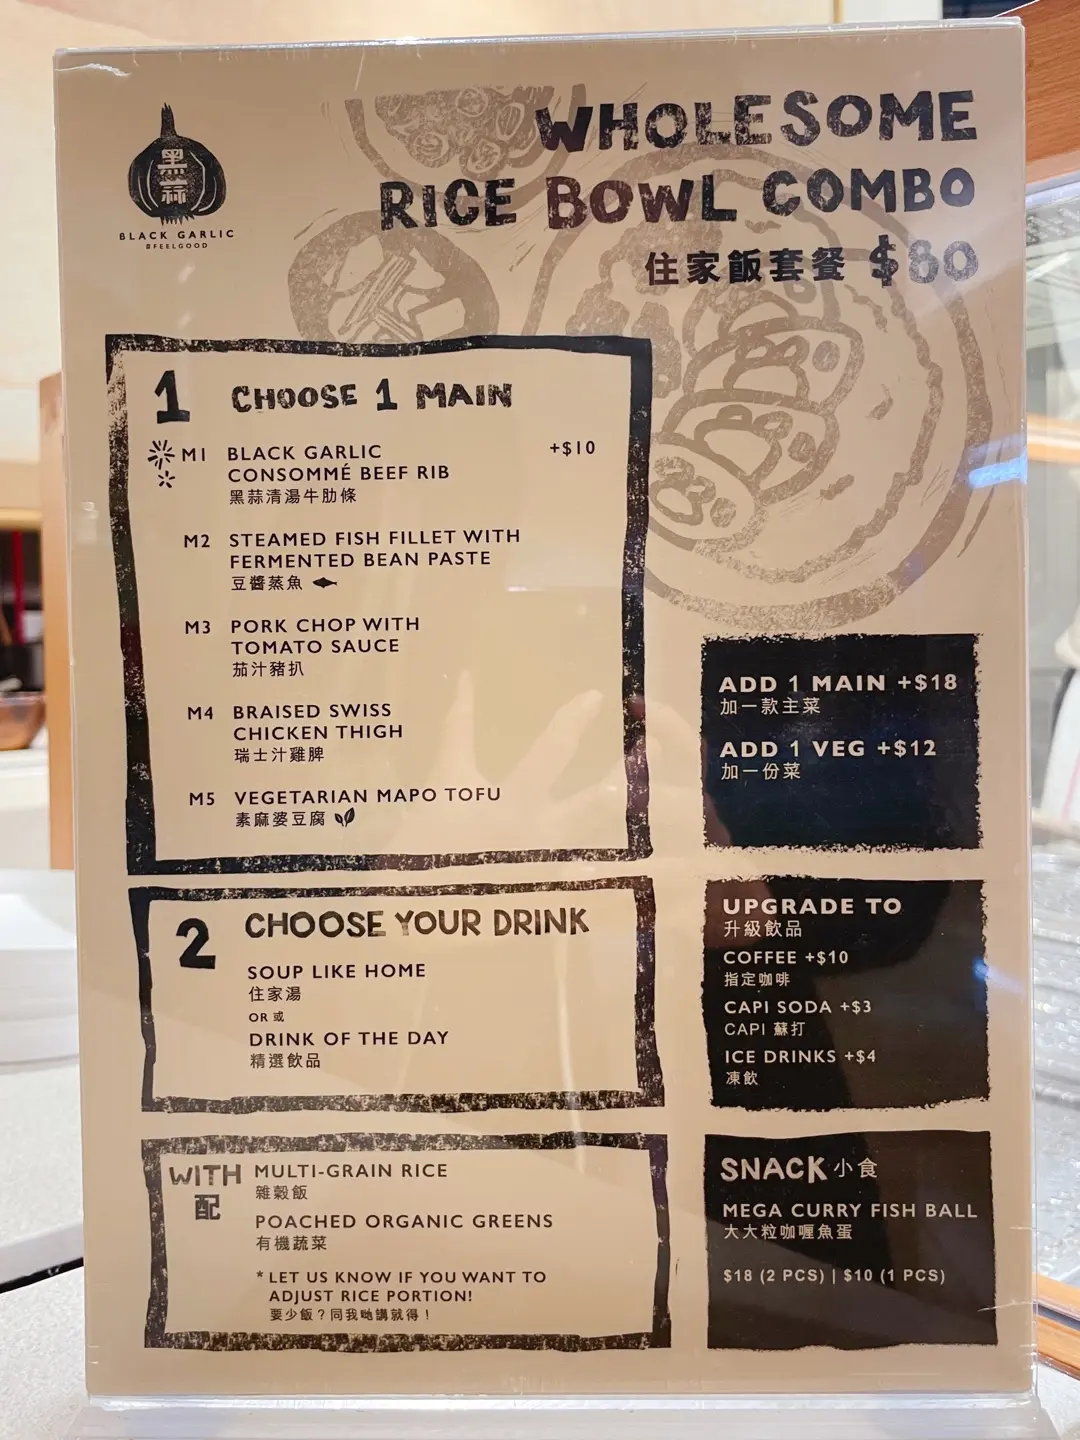 黑蒜
BLACK GARLIC
#FEELGOOD
WHOLESOME
RICE BOWL COMBO
住家飯套餐 $80
1 CHOOSE 1 MAIN
M1 BLACK GARLIC +$10
CONSOMMÉ BEEF RIB
黑蒜清湯牛肋條
M2 STEAMED FISH FILLET WITH
FERMENTED BEAN PASTE
豆醬蒸魚
M3 PORK CHOP WITH
TOMATO SAUCE
茄汁豬扒
M4 BRAISED SWISS
CHICKEN THIGH
瑞士汁雞脾
M5 VEGETARIAN MAPO TOFU
素麻婆豆腐
ADD 1 MAIN +$18
加一款主菜
ADD 1 VEG +$12
加一份菜
2 CHOOSE YOUR DRINK
SOUP LIKE HOME
住家湯
OR 或
DRINK OF THE DAY
精選飲品
UPGRADE TO
升級飲品
COFFEE +$10
指定咖啡
CAPI SODA +$3
CAPI 蘇打
ICE DRINKS +$4
凍飲
WITH
配
MULTI-GRAIN RICE
雜穀飯
POACHED ORGANIC GREENS
有機蔬菜
* LET US KNOW IF YOU WANT TO
ADJUST RICE PORTION!
要少飯？同我哋講就得！
SNACK 小食
MEGA CURRY FISH BALL
大大粒咖喱魚蛋
$18 (2 PCS) | $10 (1 PCS)